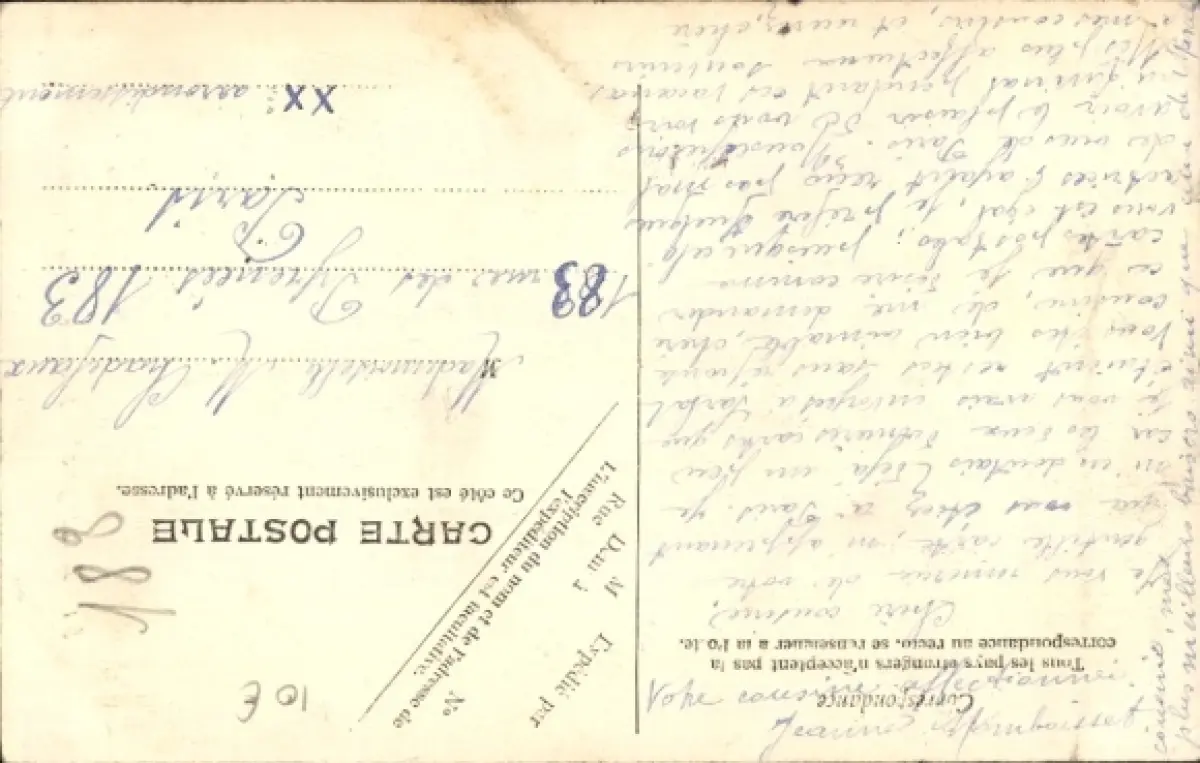 Correspondance
Tous les pays étrangers n'acceptent pas la
correspondance au recto, se renseigner à la Poste.
Chère cousine,
Je vous remercie de votre
gentille carte, m'apprenant
que vous étiez à Paris. Je
m'en doutais déjà un peu
car les deux dernières cartes que
je vous avais envoyées à
étaient restées sans réponse
Vous êtes bien aimable, chère
cousine, de me demander
ce que je désire comme
cartes postales; puisque cela
vous est égal, je préfère quelques
actrices, ayant reçu pas mal
des vues de Paris. Nous espérons
avoir le plaisir de vous voir
pendant ces vacances.
Mes plus affectueux souvenirs
à mes cousins, et recevez, chère
cousine, mes
plus meilleurs baisers ainsi que ceux de
Votre cousine affectionnée
Jeanne
CARTE POSTALE
Ce côté est exclusivement réservé à l'adresse.
Expédié par
M
Dem à
Rue
No
L'inscription du nom et de l'adresse de
l'expéditeur est facultative.
Mademoiselle M.
183 rue des Pyrénées 183
Paris
XX e arrondissement
188
10 €